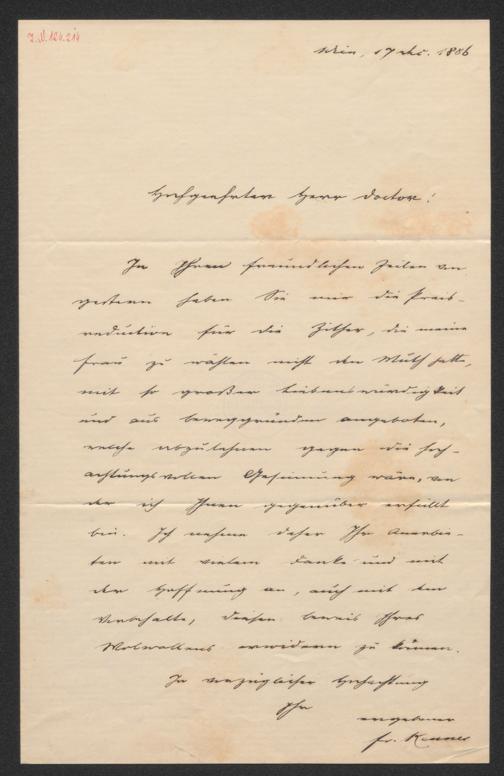 J.N. 124.214
Wien, 17 1886
Hochgeehrter Herr Doctor!
In Ihren freundlichen Zeilen von
gestern haben Sie mir die Preis-
reduction für die Zither, die meine
Frau zu wählen nicht den Muth hatte,
mit so großer Liebenswürdigkeit
und aus Beweggründen angeboten,
welche abzulehnen gegen die hoch-
achtungsvollen Gesinnung wäre, von
der ich Ihnen gegenüber erfüllt
bin. Ich nehme daher Ihr Anerbie-
ten mit vielem Danke und mit
der Hoffnung an, auch mit dem
Vorbehalte, diesen Beweis Ihres
Wolwollens erwidern zu können.
In vorzüglicher Hochachtung
Ihr ergebener
Fr. Kenner